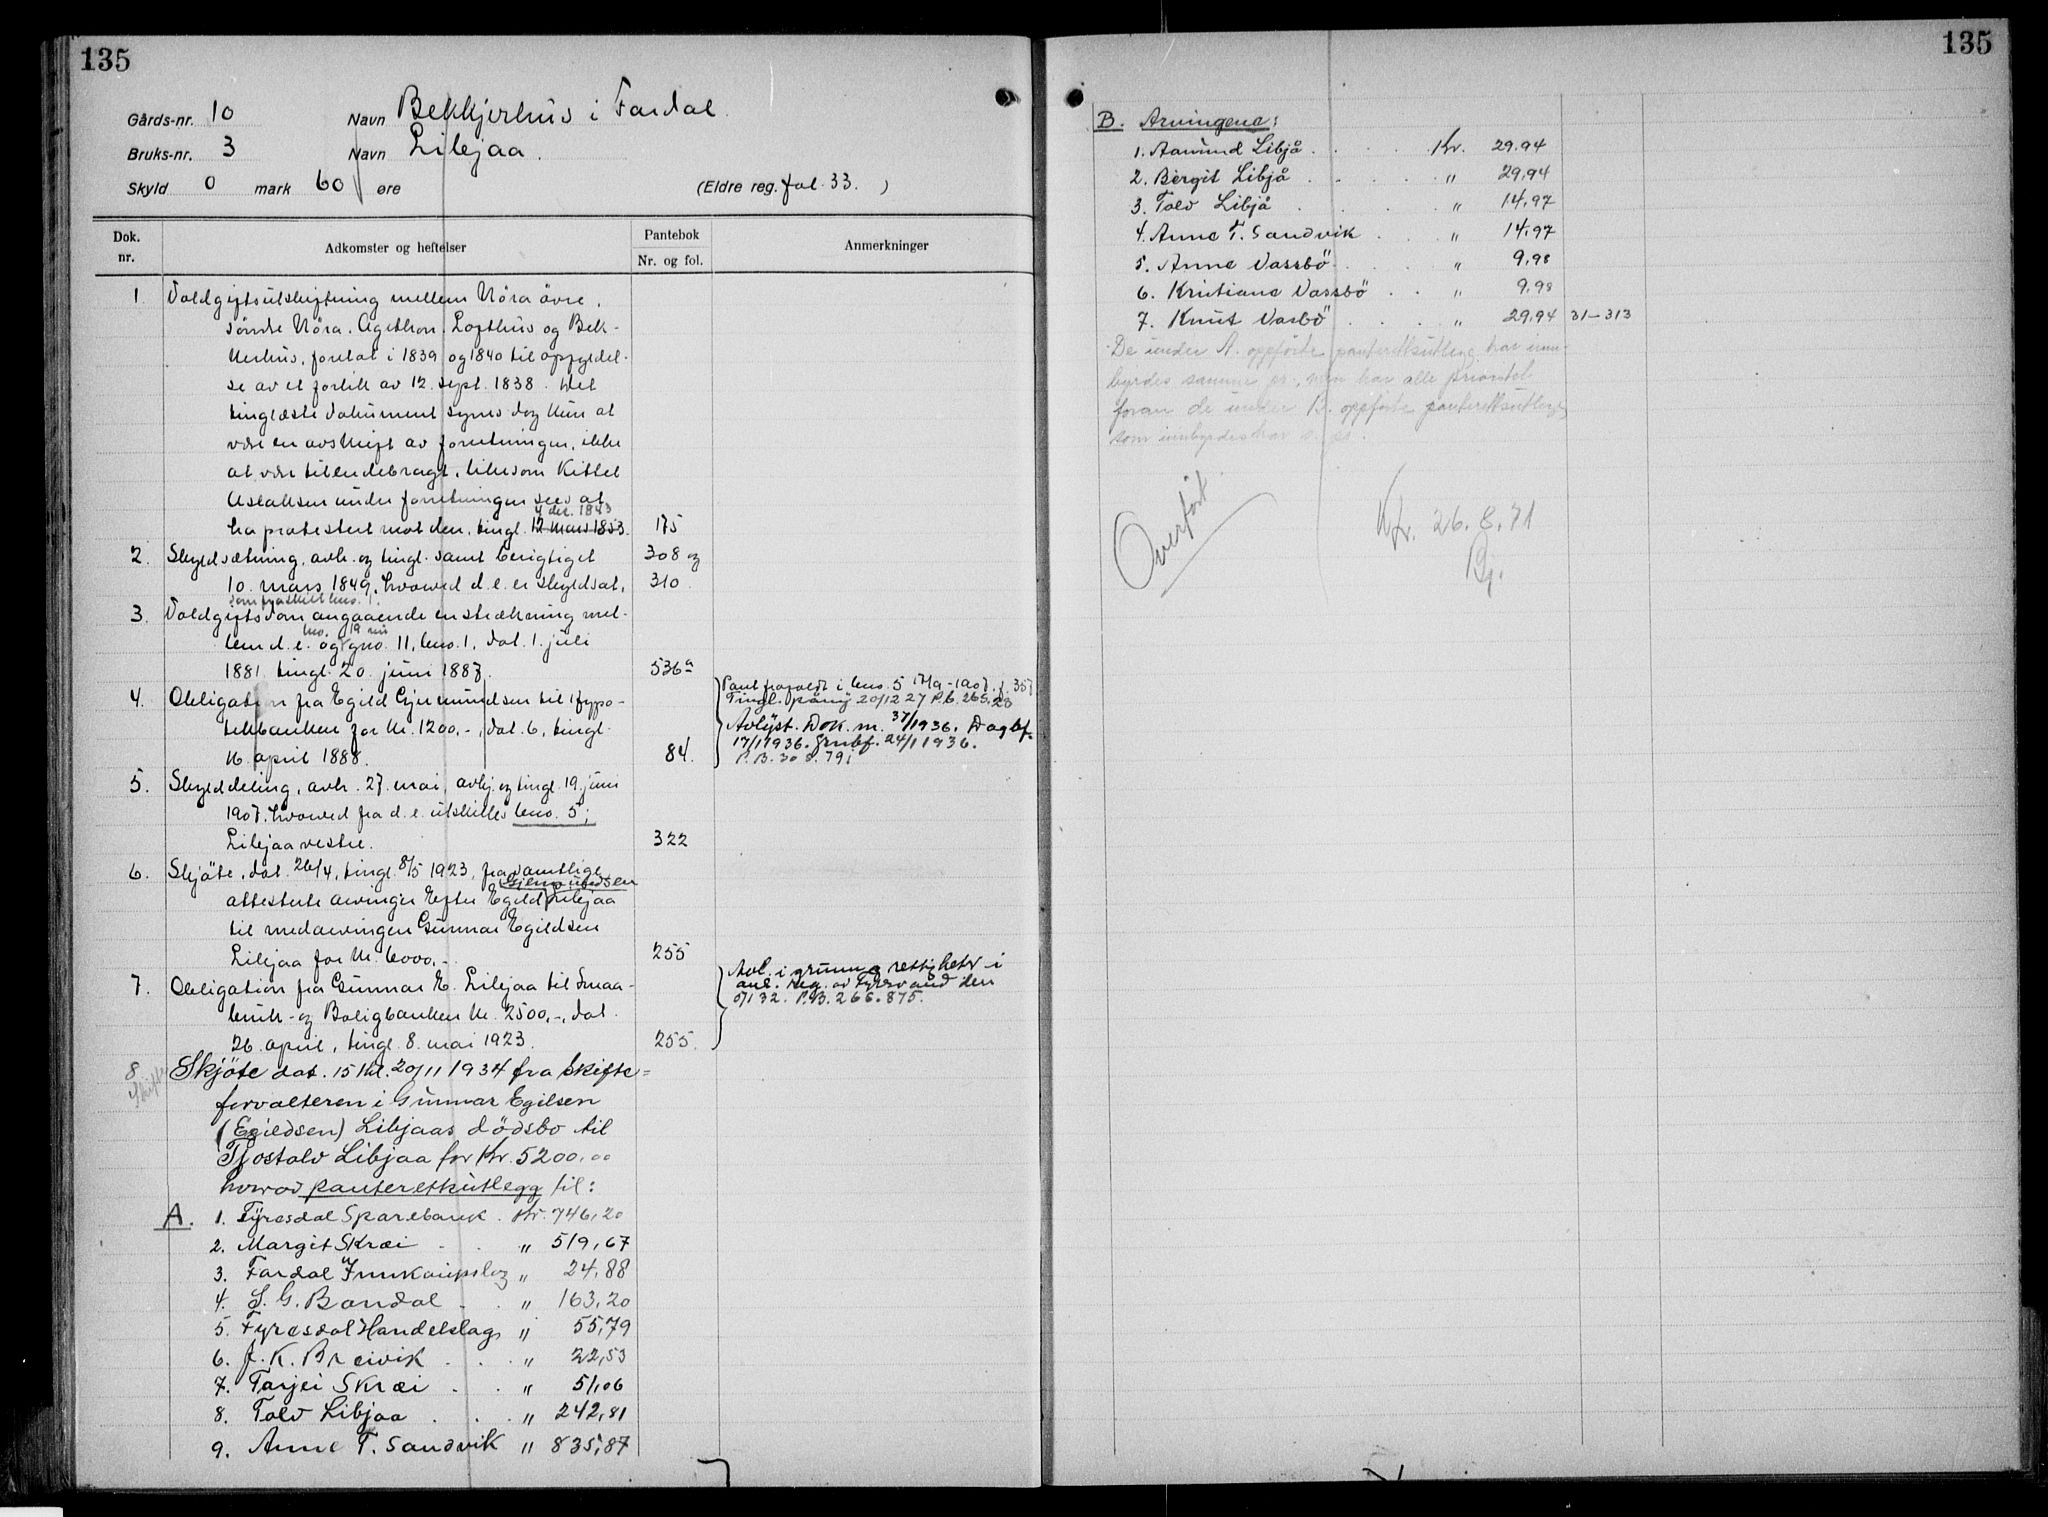 135
Gårds-nr. 10 Navn Bekkjerhus i Fardal.
Bruks-nr. 3 Navn Libjaa.
Skyld 0 mark 60 øre (Eldre reg. fol. 33.)
Dok. nr. Adkomster og heftelser Pantebok Nr. og fol. Anmerkninger
1. Voldgiftsutskiftning mellem Nöra övre,
söndre Nöra, Agethon, Lofthus og Bek-
kerhus, foretat i 1839 og 1840 til opfyldel-
se av et forlik av 12. sept. 1838. Det
tinglæste dokument synes dog kun at
være en avskrift av forretningen, ikke
at være tilendebragt, likesom Kittel
Aslaksen under forretningen sees at
4 der. 1843
ha protestert mot den, tingl. 12 mars 1853. 175
2. Skyldsætning, avh. og tingl. samt berigtiget 308 og
10. mars 1849, hvorved d. e. er skyldsat, 310.
som fraskilt bno. 1.
3. Voldgiftsdom angaaende en strækning mel-
bno. 19 nu
lem d. e. og gno. 11, bno. 1, dat. 1. juli
1881, tingl. 20. juni 1887. 536a
4. Obligation fra Egild Gjermundsen til Hypo-
tekbanken for kr. 1200,-, dat. 6, tingl.
16. april 1888. 84.
Pant frafaldt i bno. 5 17/9-1907. f. 357
Tingl. påny 20/12 27 P.b. 265.28
Avlyst. Dok. nr. 37/1936. Dagbf.
17/1 1936. Grubf. 24/1 1936.
P.B. 30 s. 791
5. Skylddeling, avh. 27. mai, avhj. og tingl. 19. juni
1907, hvorved fra d. e. utskilles bno. 5,
Libjaa vestre. 322
6. Skjöte, dat. 26/4, tingl. 8/5 1923, fra samtlige
Gjermundsen
attesterte arvinger efter Egild Libjaa
til medarvingen Gunnar Egildsen
Libjaa for kr. 6000,- 255
7. Obligation fra Gunnar E. Libjaa til Smaa-
bruk- og Boligbanken kr. 2500,-, dat.
26. april, tingl. 8. mai 1923. 255.
Avl. i grunn o rettighetv i
anl. reg. av Fyresvand den
5/1 32. P.B. 266.875.
8. Skjöte dat. 15 tkl. 20/11 1934 fra skifte-
Skifte
forvalteren i Gunnar Egilsen
(Egildsen) Libjaas dödsbo til
Tjostolv Libjaa for Kr. 5200.00
hvorav panterettsutlegg til:
A. 1. Fyresdal Sparebank. Kr. 746,20
2. Margit Skræi . . " 519,67
3. Fardal Innkaupslag " 24,88
4. S. G. Bondal . . " 163,20
5. Fyresdal Handelslag " 55,79
6. J. K. Breivik . . . " 22,53
7. Tarjei Skræi . . " 51,06
8. Tolv Libjaa . . . " 242,81
9. Anne T. Sandvik " 835,87
135
B. Arvingene:
1. Aamund Libjå . . . . Kr. 29.94
2. Bergit Libjå . . . . . " 29,94
3. Tolv Libjå . . . . " 14,97
4. Anne T. Sandvik . . " 14,97
5. Anne Vassbö . . . . " 9,98
6. Kristiane Vassbö . . " 9,98
7. Knut Vasbö . . . . " 29,94 31-313
De under A. oppförte panterettsutlegg har inn-
byrdes samme pr., men har alle prioritet
foran de under B. oppförte panterettsutlegg
som innbyrdes har s. pr.
Overfört
Kfr. 26.8.71
Bj.